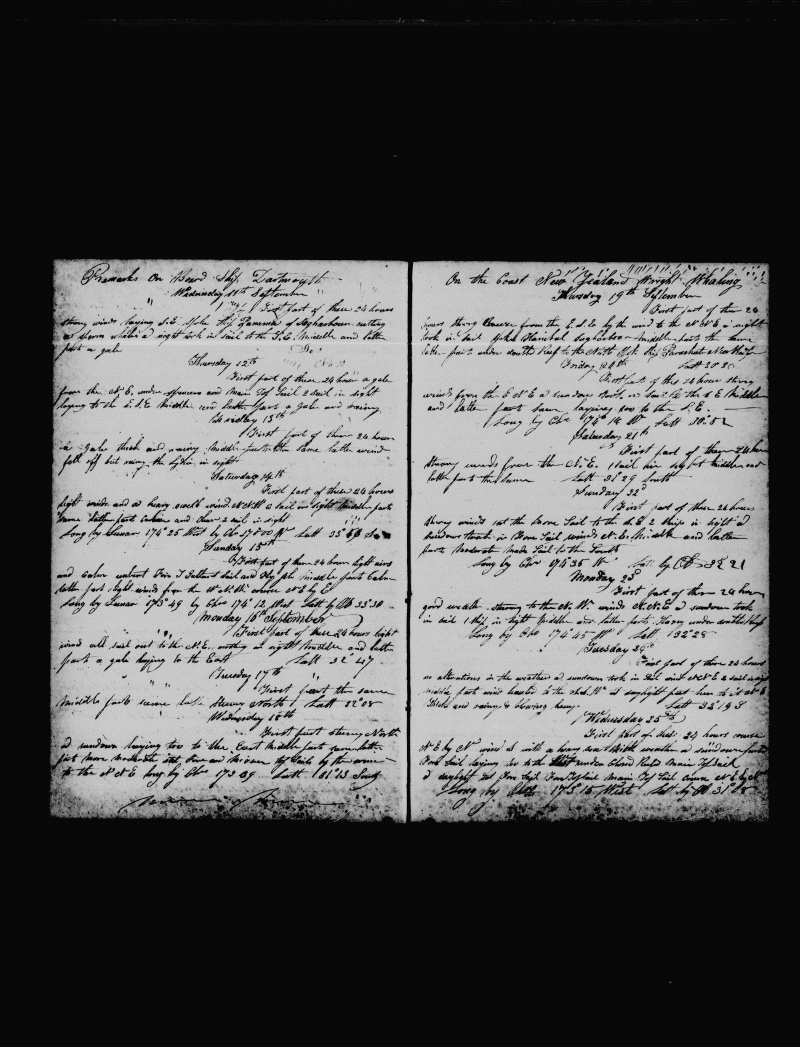 Remarks On Board Ship Dartmouth
Wednesday 11th September
First part of these 24 hours
strong winds laying S.E. spoke Ship Panama of Sagharbour cutting
a sperm whale at night took in sail to the S.E. Middle and latter
part a gale
Thursday 12th
First part of these 24 hours a gale
from the N.E. under spencers and Main Top Sail 2 sail in sight
laying to the S.S.E. Middle and latter part a gale and rainy
Friday 13th
First part of these 24 hours
a gale thick and rainy middle part the same latter wind
fell off but rainy in sight
Saturday 14th
First part of these 24 hours
light winds and a heavy swell wind N.N.W. a sail in sight middle part
same latter part calm and clear 2 sail in sight
Long by Lunar 174° 25 West by Clo Latt 33°
Sunday 15th
First part of these 24 hours light airs
and calm Sail and Fly Jib middle part Calm
latter part light winds from the W.N.W. course N.E by E
Long by Lunar 173° 49 by Clo 174° 12 West Latt by Ob 33° 30
Monday 16th September
First part of these 24 hours light
wind all sail out to the N.E. nothing in sight Middle and latter
parts a gale laying to the East Latt 32° 47
Tuesday 17th
First part the same
middle part same latter Steering North Latt 32° 08
Wednesday 18th
First part steering North
at sundown laying too to the East middle part same latter
part more moderate set Fore and Mizzen Top Sails by the wind
to the N.N.E long by Clo 173 39 Latt 31° 13 South
On the Coast New Zealand Wright Whaling
Thursday 19th September
First part of these 24
hours strong breeze from the E.S.E by the wind to the N.N.E at night
took in sail spoke Hanibal Sag Harbor middle part the same
latter part under double Reef to the North spoke Ship Parachute New
Friday 20th Latt 30
First part of this 24 hours strong
winds from the E.N.E at sundown took in Sail to the S E Middle
and latter part same laying too to the S.E.
Long by Clo 174° 14 W Latt 30° 52
Saturday 21th
First part of these 24 hours
strong winds from the N.E. 1 sail in sight middle and
latter parts the same Latt 31° 29 South
Sunday 22d
First part of these 24 hours
strong winds set the Fore Sail to the S.E 2 Ships in sight at
Sundown took in Fore Sail winds N.E. Middle and latter
part Moderate Made Sail to the South
Long by Clo 175° 35 W Latt by Ob 32 21
Monday 23d
First part of these 24 hours
good weather steering to the N.W. winds N.N.E at sundown took
in sail 1 Ship in sight Middle and latter parts Heavy under double
Long by Clo 174° 45 W Latt 32° 28
Tuesday 24th
First part of these 24 hours
no alterations in the weather at sundown took in Sail wind N.N.E 2 sail in sight
middle part wind hauled to the at daylight N E
thick and rainy & blowing heavy Latt 32° 19 S
Wednesday 25th
First part of these 24 hours course
N E by N wind with a heavy sea thick weather at sundown
Fore Sail laying too to the under Close Reefed Main Top Sail
at daylight set Fore Sail Fore Top Sail Main Top Sail Course N.E by N
Long by Clo 173° 15 West Latt by Ob 31° 18